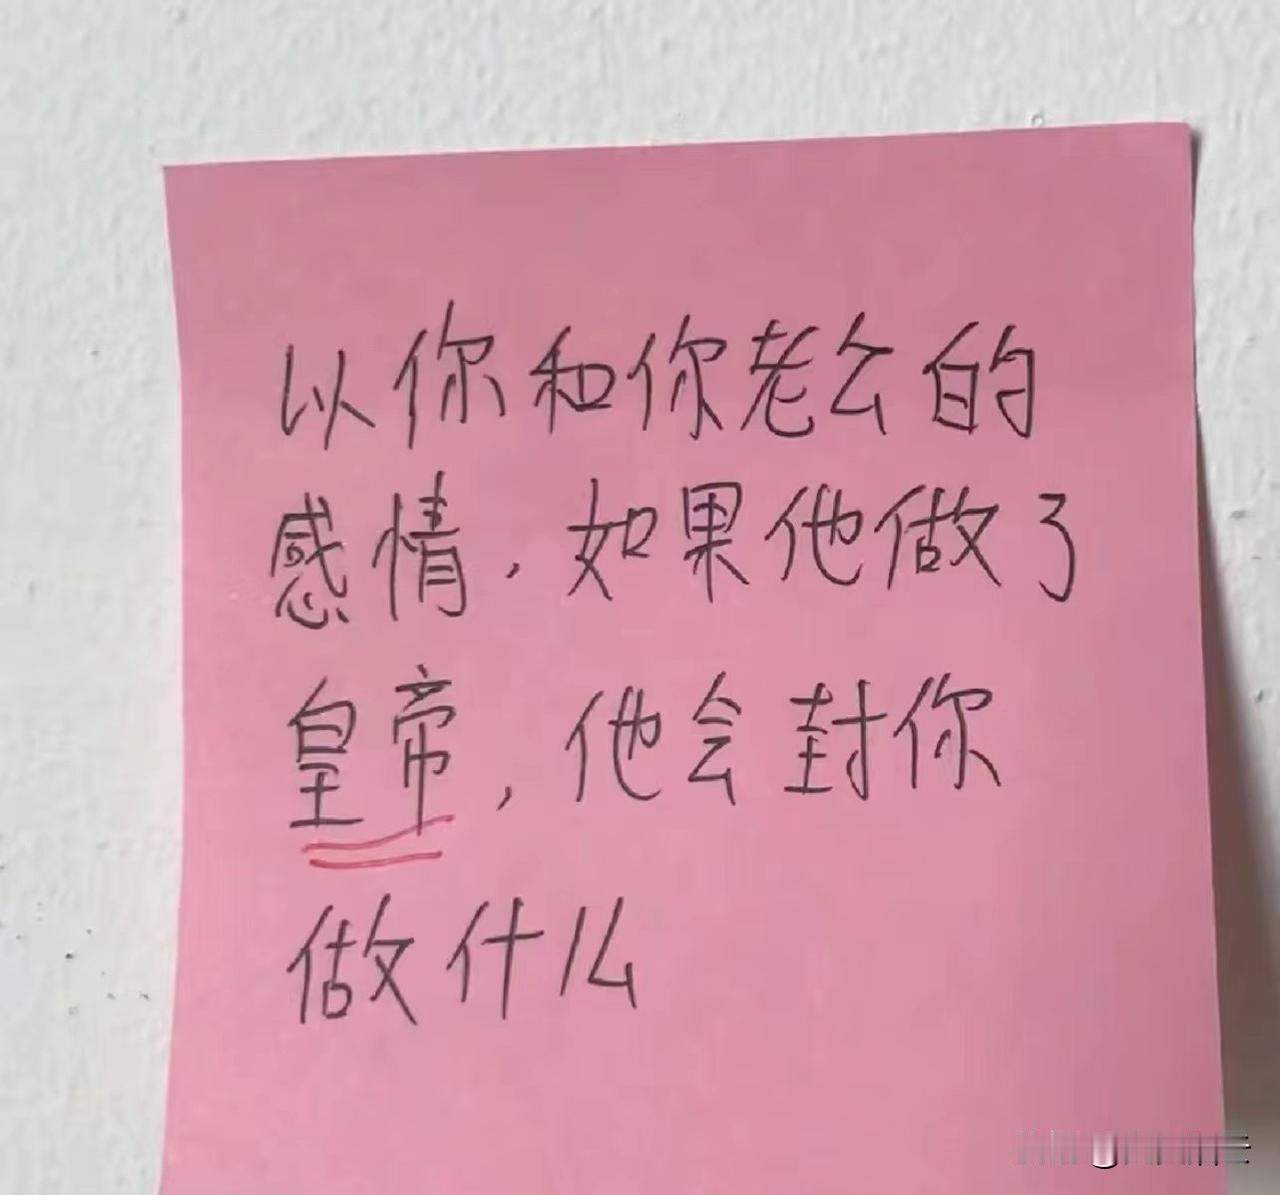 以你和你老公的
感情,如果他做了
皇帝,他会封你
做什么